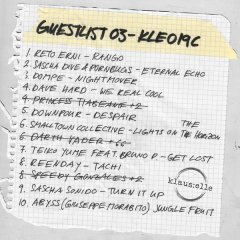 GUESTLIST 03 - KLEOPAC
1. RETO ERNI - RANGO
2. SASCHA DIVE & PORNBUGS - ETERNAL ECHO
3. DOMPE - NIGHTMOVER
4. DAVE HARD - WE REAL COOL
4. PRINCESS TIABEANIE +2
5. DOWNPOUR - DESPAIR
6. SMALLTOWN COLLECTIVE - LIGHTS ON THE HORIZON
6. DARTH VADER +66
7. TEIKO YUME FEAT. BRUNO P - GET LOST
8. REENDAY - TACHI
8. SPEEDY GONZALES +2
9. SASCHA SONIDO - TURN IT UP
10. ABYSS (GIUSEPPE MORABITO) JUNGLE FRUIT
klaus:elle